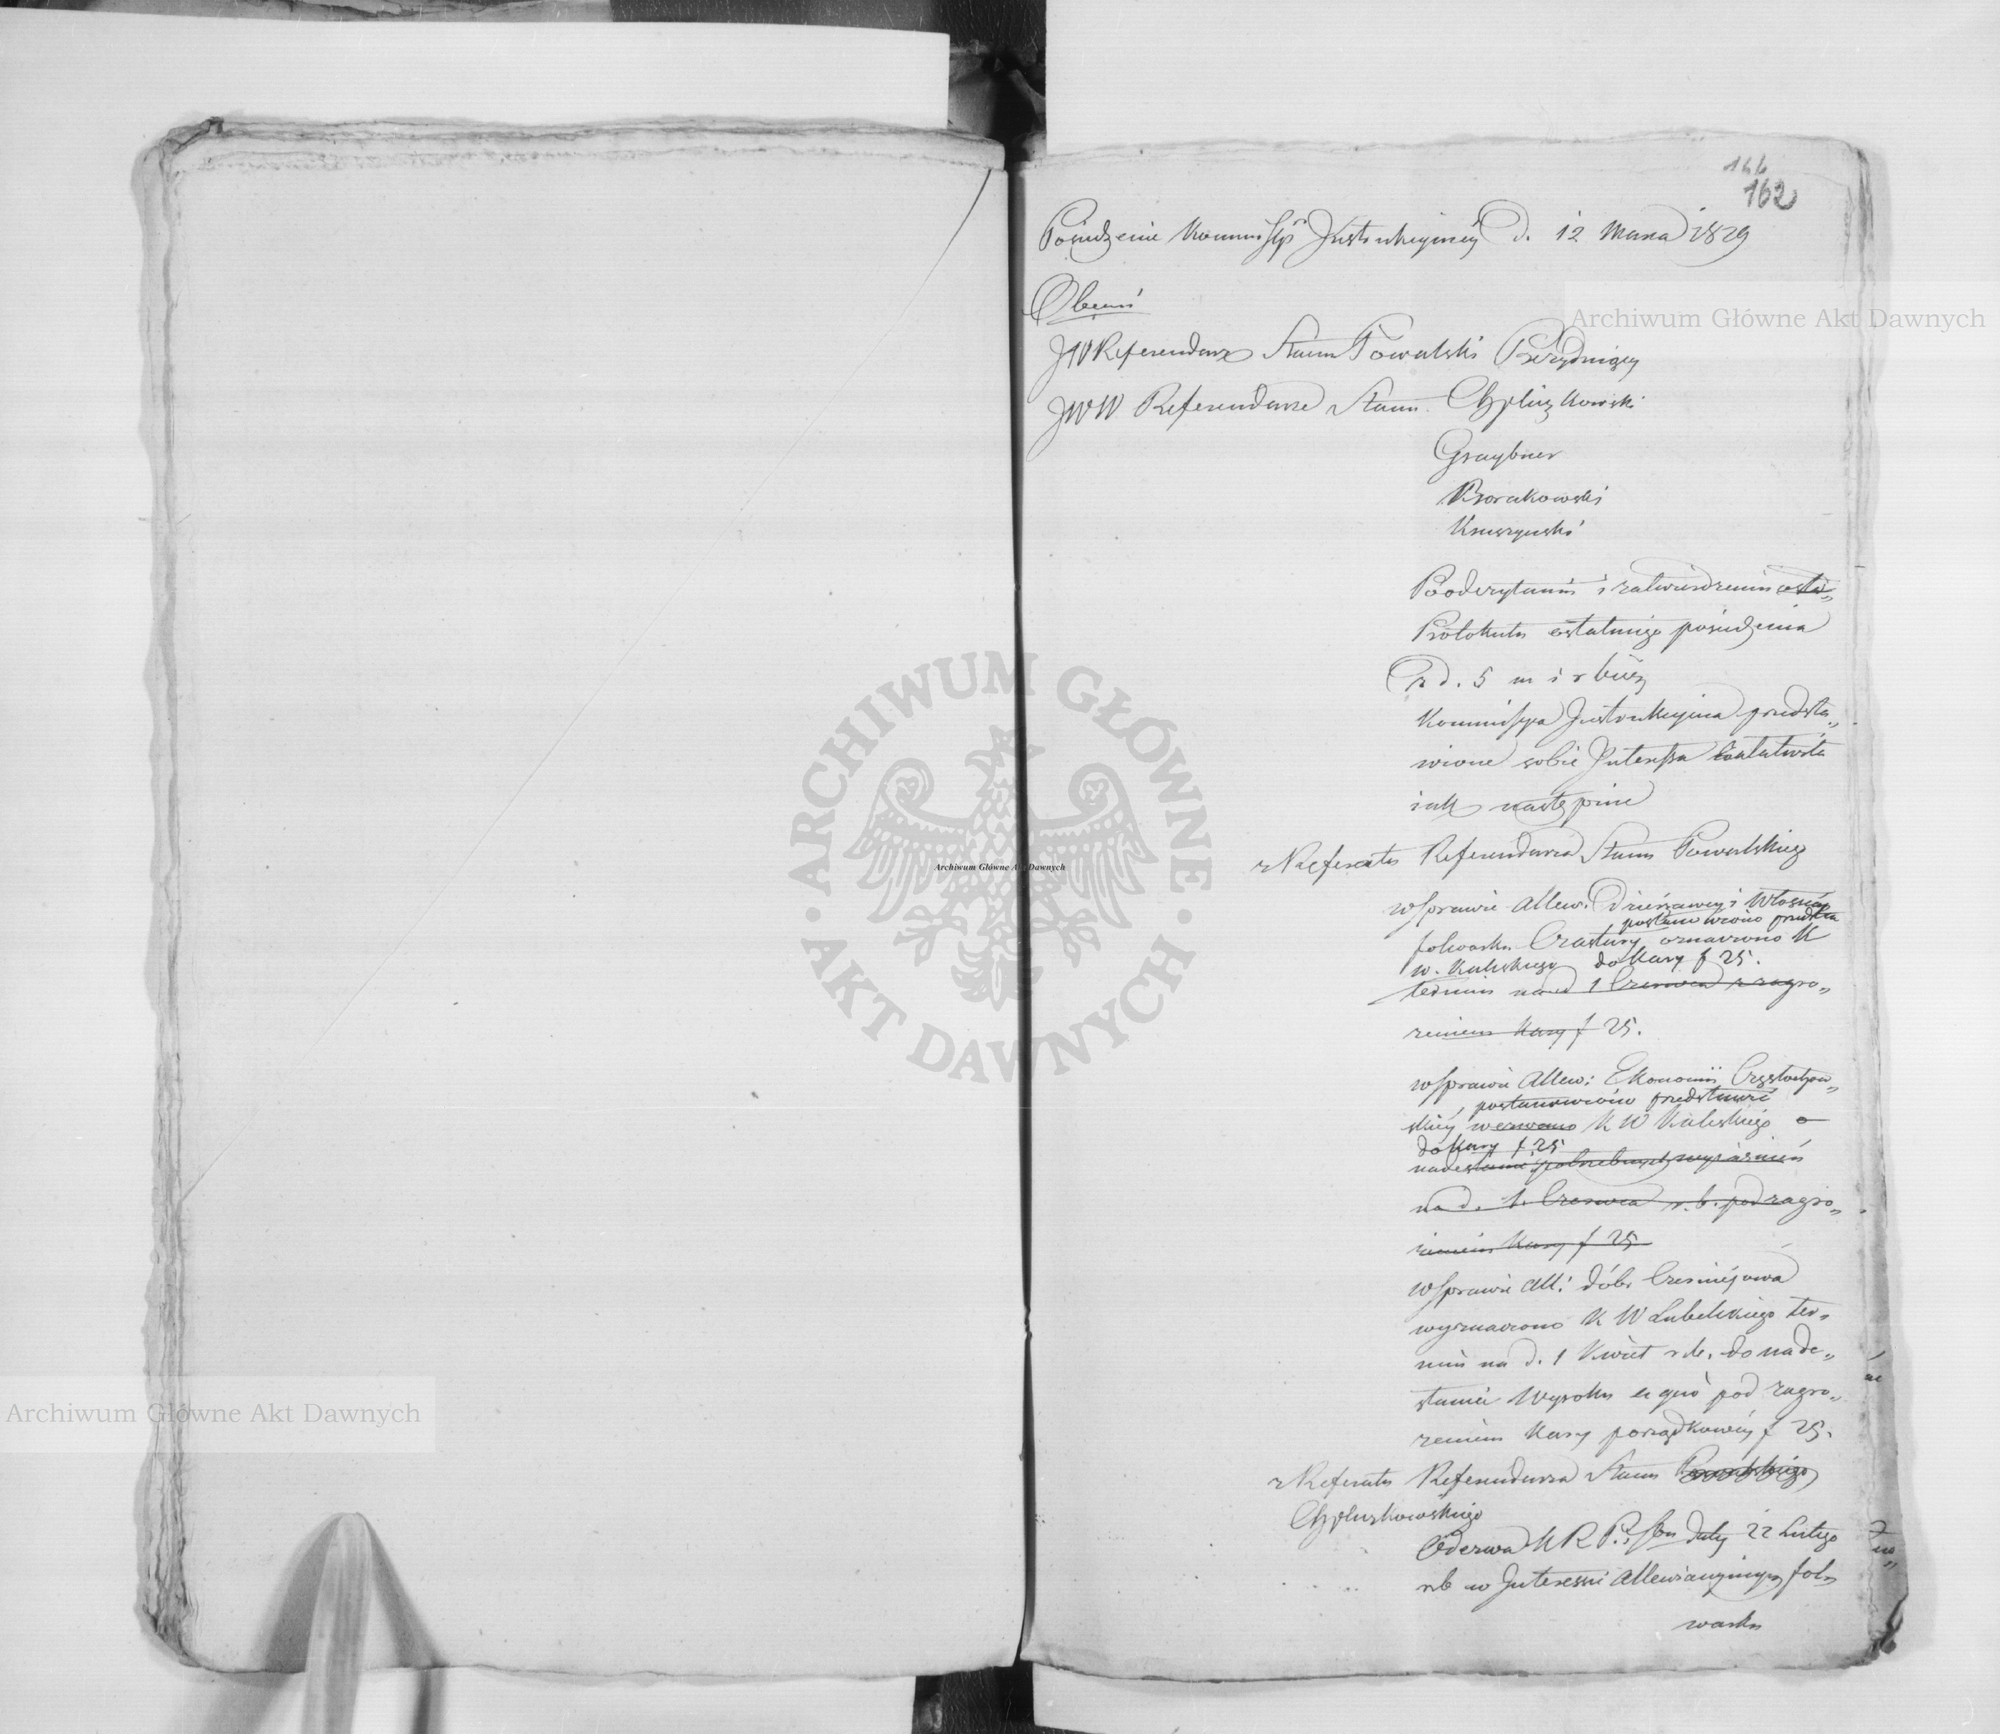 166
162
Posiedzenie Kommissyi Instrukcyiney D. 12 Marca 1829
Obecni
JW Referendarz Stanu Powalski Prezyduiący
JWW Referendarze Stanu
Graybner
Borakowski
Kruszynski
Po odczytaniu i zatwierdzeniu osta„
Protokułu ostatniego posiedzenia
z d. 5 m i r bież
Kommissya Instrukcyina przedsta„
wione sobie Interessa załatwiła
iak następnie
z Referatu Referendarza Stanu Powalskiego
w sprawie Allew. Dzierżawcy i Włościan
postanowiono przedsta
folwarku oznaczono K
w. Kaliskiego do Kary f 25.
termin na d 1 Czerwca z zagro„
żeniem Kary f 25.
w sprawie Allew: Ekonomii Częstochow„
postanowiono przedstawić
skiéy wezwano K W Kaliskiego o
do Kary f 25
nadesłanie potrzebnych wyiaśnień
na d. 1. Czerwca r. b. pod zagro„
żeniem Kary f 25
w sprawie All: dóbr
wyznaczono K W Lubelskiego ter„
min na d. 1 Kwiet r. b. do nade„
słania Wyroku a quo pod zagro„
żeniem Kary porządkowéy f 25.
z Referatu Referendarza Stanu Powalskiego
Odezwa K R P. i Sk daty 22 Lutego
rb w Interessie Allewiacyinym fol„
warku
Archiwum Główne Akt Dawnych
Archiwum Główne Akt Dawnych
Archiwum Główne Akt Dawnych
ARCHIWUM GŁÓWNE · AKT DAWNYCH ·